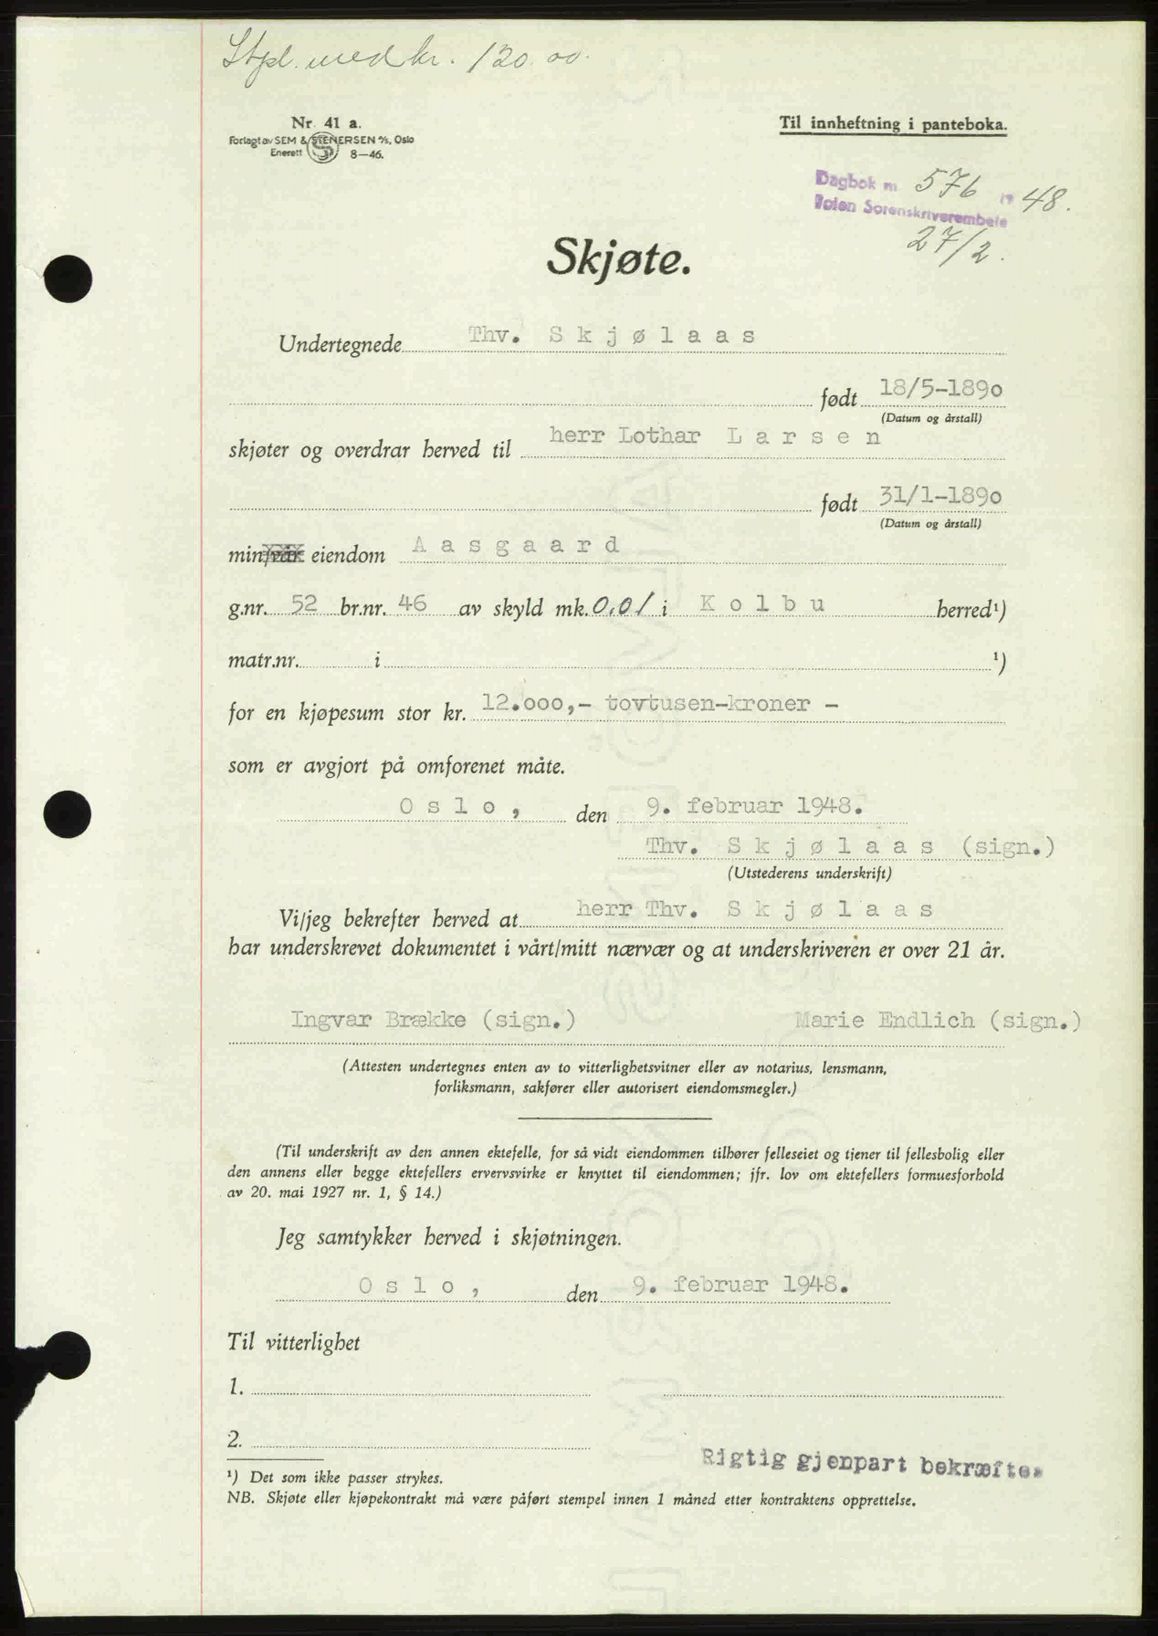 Stpl. med kr. 120.00.
Nr. 41 a.
Forlagt av SEM & STENERSEN A/S, Oslo
Enerett 8—46.
Til innheftning i panteboka.
Dagbok nr. 576 19 48.
Toten Sorenskriverembete
27/2.
Skjøte.
Undertegnede Thv. Skjølaas
født 18/5-1890
(Datum og årstall)
skjøter og overdrar herved til herr Lothar Larsen
født 31/1-1890
(Datum og årstall)
min/vår eiendom Aasgaard
g.nr. 52 br.nr. 46 av skyld mk. 0,01 i Kolbu herred¹)
matr.nr. i ¹)
for en kjøpesum stor kr. 12.000,- tovtusen-kroner -
som er avgjort på omforenet måte.
Oslo, den 9. februar 1948.
Thv. Skjølaas (sign.)
(Utstederens underskrift)
Vi/jeg bekrefter herved at herr Thv. Skjølaas
har underskrevet dokumentet i vårt/mitt nærvær og at underskriveren er over 21 år.
Ingvar Brække (sign.) Marie Endlich (sign.)
(Attesten undertegnes enten av to vitterlighetsvitner eller av notarius, lensmann,
forliksmann, sakfører eller autorisert eiendomsmegler.)
(Til underskrift av den annen ektefelle, for så vidt eiendommen tilhører felleseiet og tjener til fellesbolig eller
den annens eller begge ektefellers ervervsvirke er knyttet til eiendommen; jfr. lov om ektefellers formuesforhold
av 20. mai 1927 nr. 1, § 14.)
Jeg samtykker herved i skjøtningen.
Oslo, den 9. februar 1948.
Til vitterlighet
1.
2.
Rigtig gjenpart bekræftes
¹) Det som ikke passer strykes.
NB. Skjøte eller kjøpekontrakt må være påført stempel innen 1 måned etter kontraktens opprettelse.